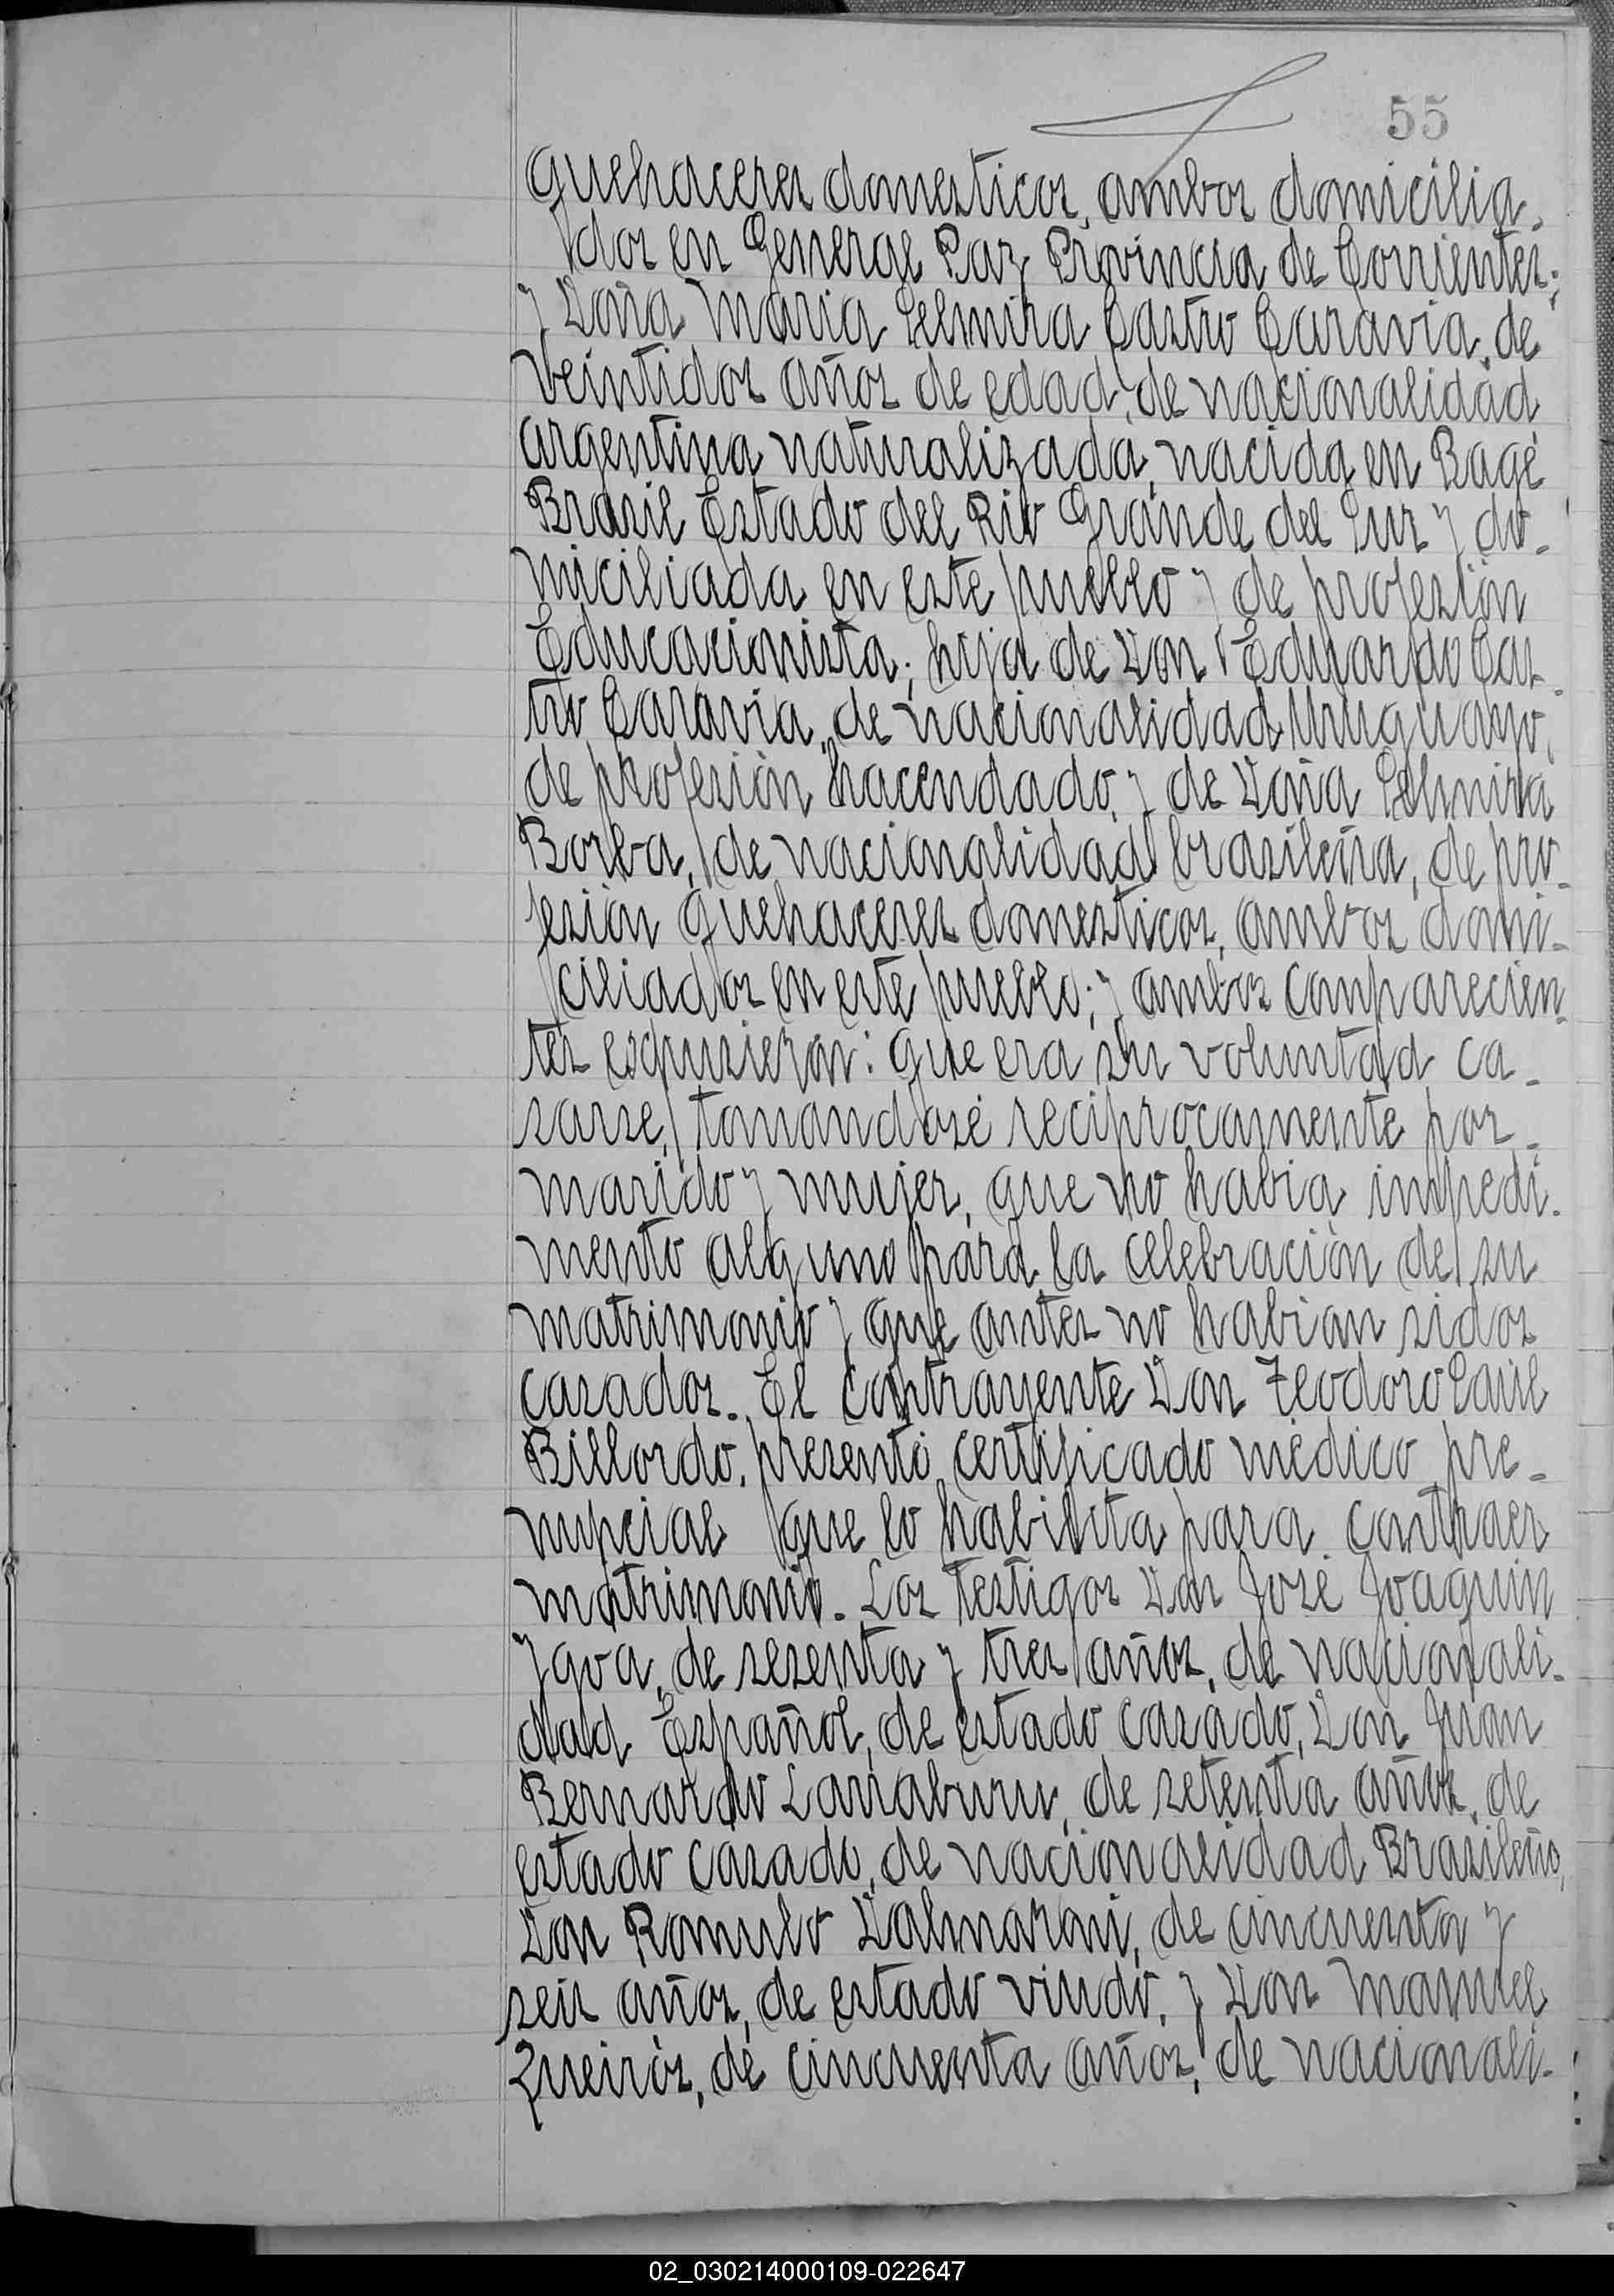 55
quehaceres domesticos, ambos domicilia-
dos en General Paz Provincia de Corrientes;
y Doña Maria Celmira Castro Caravia, de
veintidos años de edad, de nacionalidad
argentina naturalizada, nacida en Bagé
Brasil Estado del Rio Grande del Sur y do-
miciliada en este pueblo y de profesión
Educacionista; hija de Don Eduardo Cas-
tro Caravia, de nacionalidad Uruguayo,
de profesión hacendado, y de Doña Celmira
Borba, de nacionalidad brasileña, de pro-
fesión quehaceres domesticos, ambos domi-
ciliados en este pueblo; y ambos comparecien-
tes espusieron: que era su voluntad ca-
sarse, tomandose reciprocamente por
marido y mujer, que no habia impedi-
mento alguno para la celebración de su
matrimonio y que antes no habian sidos
casados. El contrayente Don Teodoro Saúl
Billordo, presentó certificado médico pre-
nupcial que lo habilita para contraer
matrimonio. Los testigos Don José Joaquin
Ygoa, de sesenta y tres años, de nacionali-
dad Español, de estado casado, Don Juan
Bernardo Larraburu, de setenta años, de
estado casado, de nacionalidad Brasileño,
Don Romulo Dalmaroni, de cincuenta y
seis años, de estado viudo, y Don Manuel
Queirós, de cincuenta años, de nacionali-
02_030214000109-022647